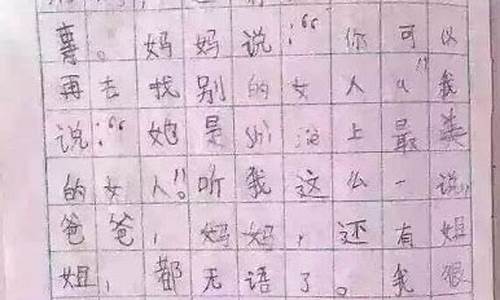 事。妈妈说:“你可以
再去找别的女人。”我
说:“她是shì jiè上最美
的女人”。听我这么一说,
爸爸,妈妈,还有姐
姐,都无语了。我狠